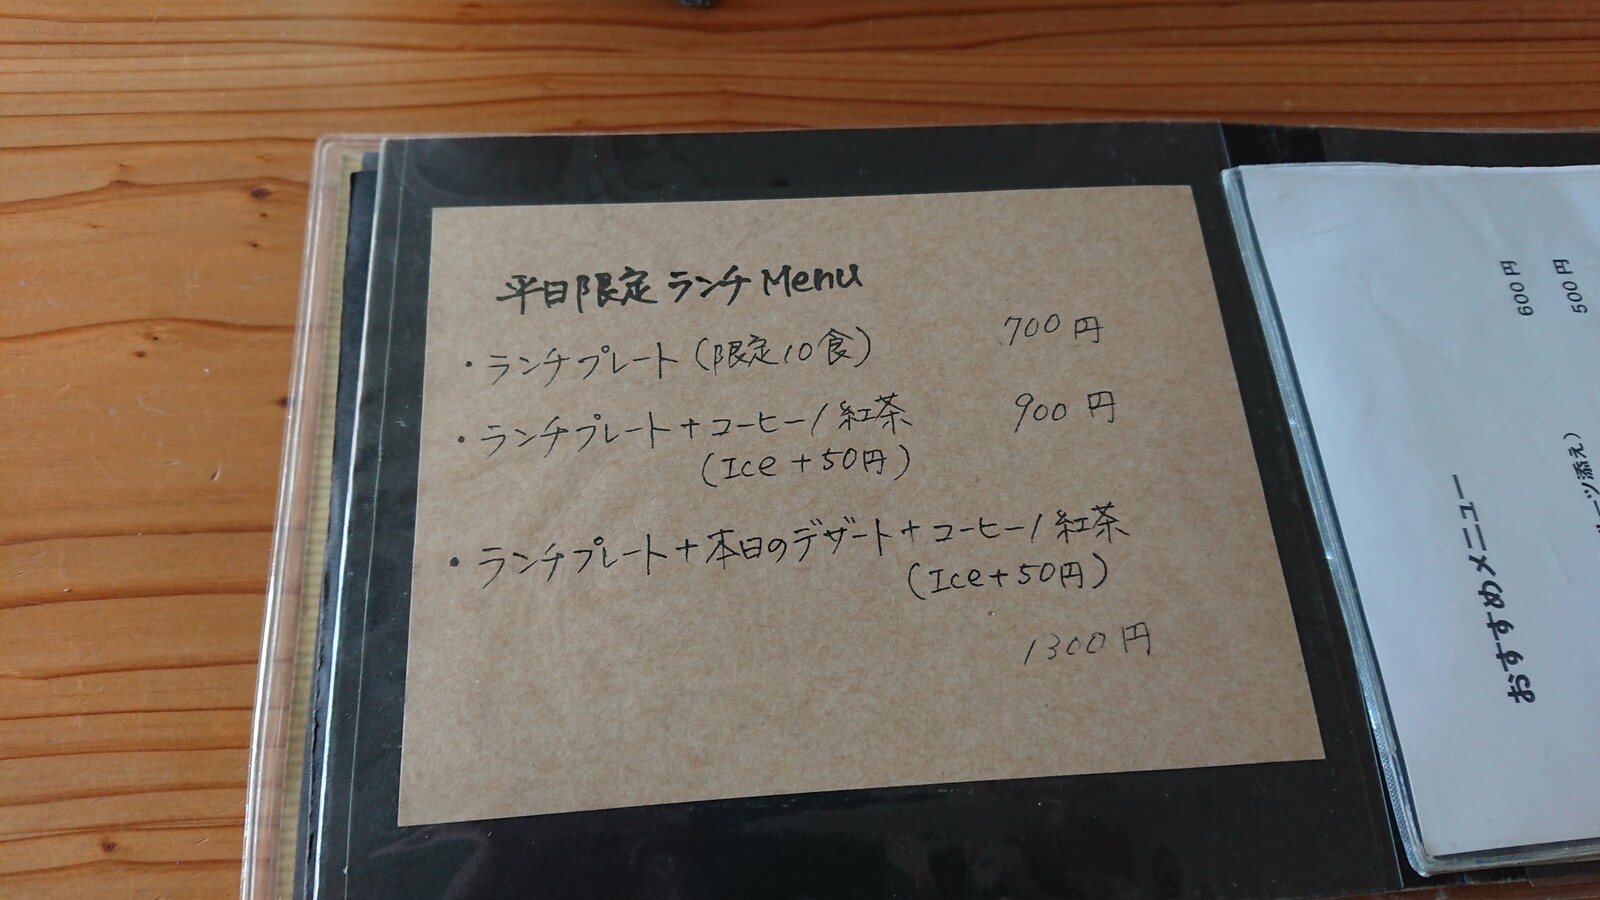 平日限定 ランチ Menu
・ランチプレート（限定10食） 700円
・ランチプレート＋コーヒー/紅茶 900円
（Ice＋50円）
・ランチプレート＋本日のデザート＋コーヒー/紅茶
（Ice＋50円）
1300円
おすすめメニュー
600円
500円
ーツ添え）